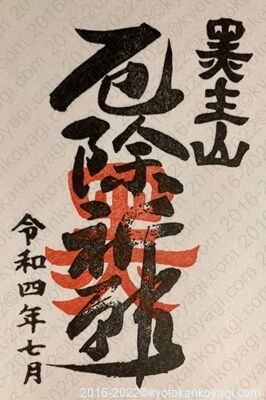 黒主山
厄除祈雝
令和四年七月
2016-2022©kyotokankoyagi.com